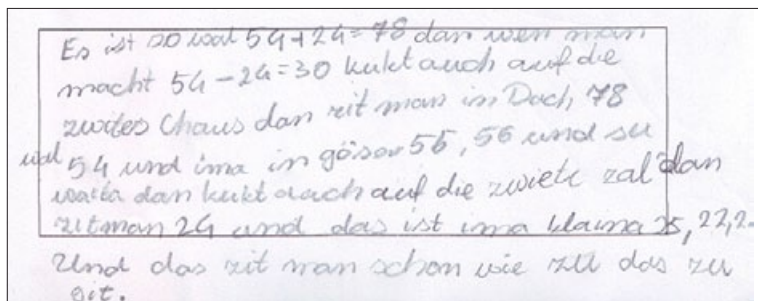 Es ist so wal 54+24=78 dan wen man
macht 54-24=30 kukt auch auf die
zwites Chaus dan zit man in Dach 78
wal 54 und ima in göser 55, 56 und su
waita dan kukt auch auf die zwiete zal dan
zitman 24 und das ist ima klaina 25, 22, 2
Und das zit man schon wie zu das zu
git.